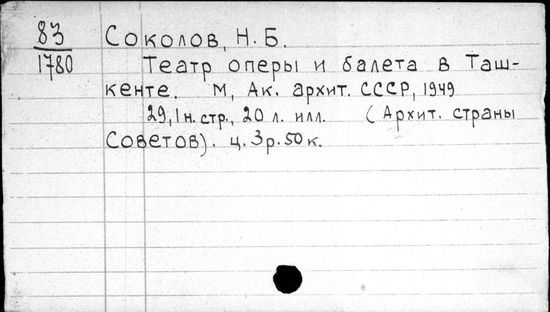 83
1780
Соколов, Н.Б.
Театр оперы и балета в Таш-
кенте. М, Ак. архит. СССР, 1949
29, 1 н. стр., 20 л. илл. (Архит. страны
Советов). ц. 3 р. 50 к.